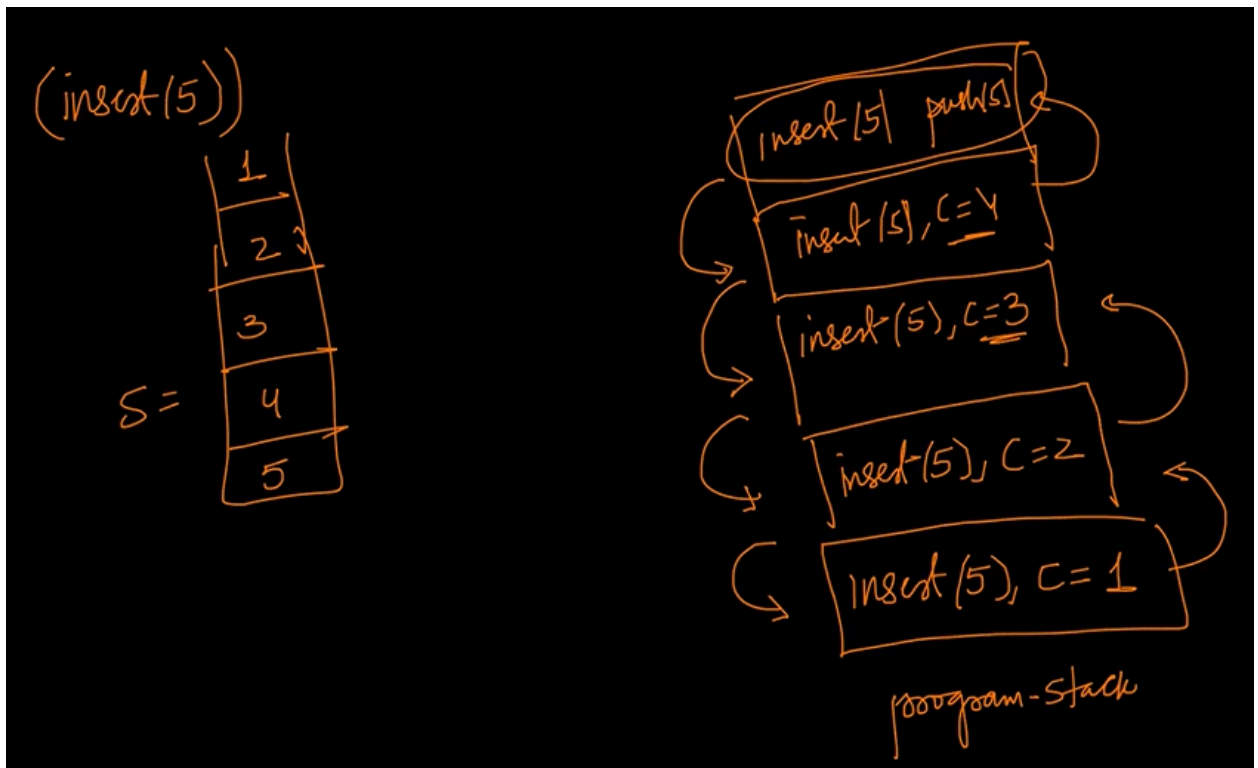 (insert(5))
1
2
3
S =
4
5
insert(5) push(5)
insert(5), C=4
insert(5), C=3
insert(5), C=2
insert(5), C=1
program-stack